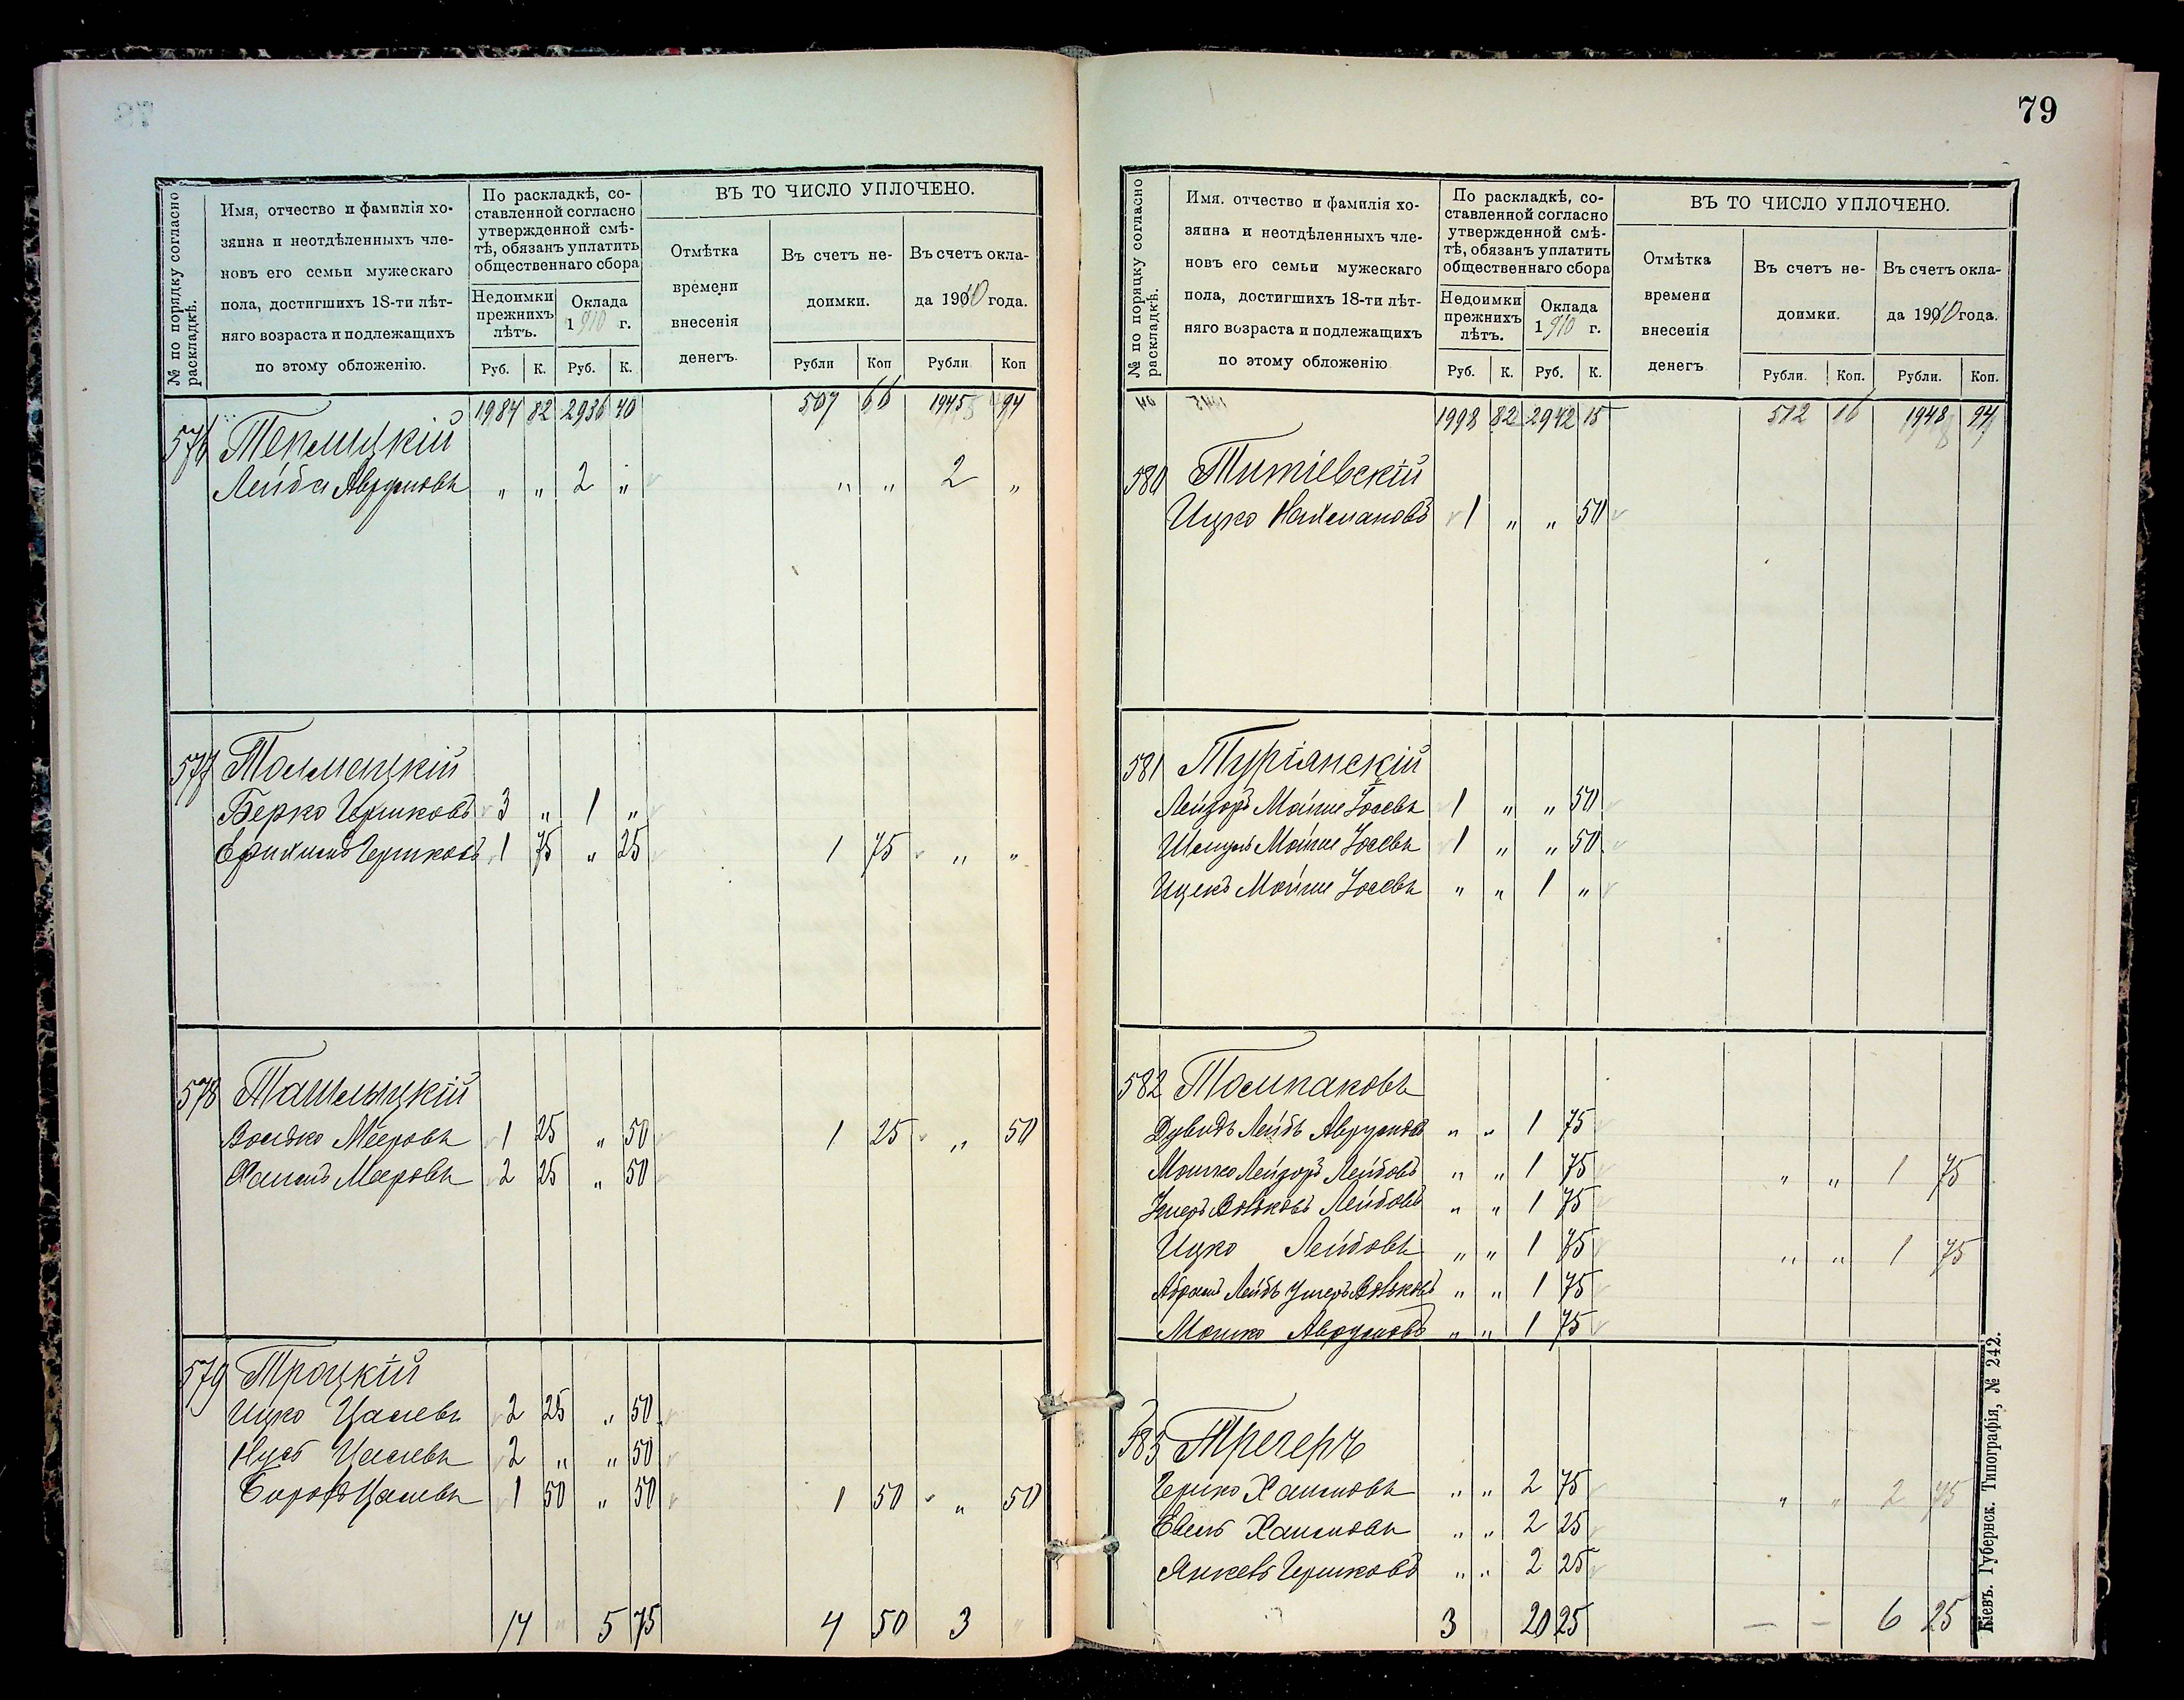 79
№ по порядку согласно раскладкѣ.
Имя, отчество и фамилія хо-
зяина и неотдѣленныхъ чле-
новъ его семьи мужескаго
пола, достигшихъ 18-ти лѣт-
няго возраста и подлежащихъ
по этому обложенію.
По раскладкѣ, со-
ставленной согласно
утвержденной смѣ-
тѣ, обязанъ уплатить
общественнаго сбора
Недоимки
прежнихъ
лѣтъ.
Оклада
1910 г.
ВЪ ТО ЧИСЛО УПЛОЧЕНО.
Отмѣтка
времени
внесенія
денегъ.
Въ счетъ не-
доимки.
Въ счетъ окла-
да 1910 года.
Руб. К. Руб. К. Рубли Коп Рубли Коп
1984 82 2936 40 507 66 1945 94
576 Теплицкій
Лейба Аврумовъ " " 2 " " " 2 "
577 Толмацкій
Берко Гершковъ 3 " 1 "
Фроимъ Гершковъ 1 75 " 25 1 75 " "
578 Ташлыцкій
Волько Мееровъ 1 25 " 50 1 25 " 50
Хаимъ Мееровъ 2 25 " 50
579 Троцкій
Ицко Цалевъ 2 25 " 50
Нусъ Цалевъ 2 " " 50
Цалевъ 1 50 " 50 1 50 " 50
14 " 5 75 4 50 3 "
№ по поряцку согласно раскладкѣ.
Имя. отчество и фамилія хо-
зяина и неотдѣленныхъ чле-
новъ его семьи мужескаго
пола, достигшихъ 18-ти лѣт-
няго возраста и подлежащихъ
по этому обложенію
По раскладкѣ, со-
ставленной согласно
утвержденной смѣ-
тѣ, обязанъ уплатить
общественнаго сбора
Недоимки
прежнихъ
лѣтъ.
Оклада
1910 г.
ВЪ ТО ЧИСЛО УПЛОЧЕНО.
Отмѣтка
времени
внесенія
денегъ
Въ счетъ не-
доимки.
Въ счетъ окла-
да 1910 года.
Руб. К. Руб. К. Рубли. Коп. Рубли. Коп.
1998 82 2942 15 512 16 1948 94
580 Титіевскій
Ицко Нахмановъ 1 " " 50
581 Туріянскій
Лейзоръ Мойше Іосевъ 1 " " 50
Шмуль Мойше Іосевъ 1 " " 50
Ицекъ Мойше Іосевъ " " 1 "
582 Толпаковъ
Дувидъ Лейбъ Аврумовъ " " 1 75
Мошко Лейзоръ Лейбовъ " " 1 75 " " 1 75
Лейбовъ " " 1 75
Ицко Лейбовъ " " 1 75 " " 1 75
Абрамъ Лейбъ " " 1 75
Мошко Аврумовъ " " 1 75
583 Трегеръ
Гершко Хаимовъ " " 2 75 " " 2 75
Евель Хаимовъ " " 2 25
Янкевъ Гершковъ " " 2 25
3 " 20 25 — — 6 25
Кіевъ. Губернск. Типографія, № 242.